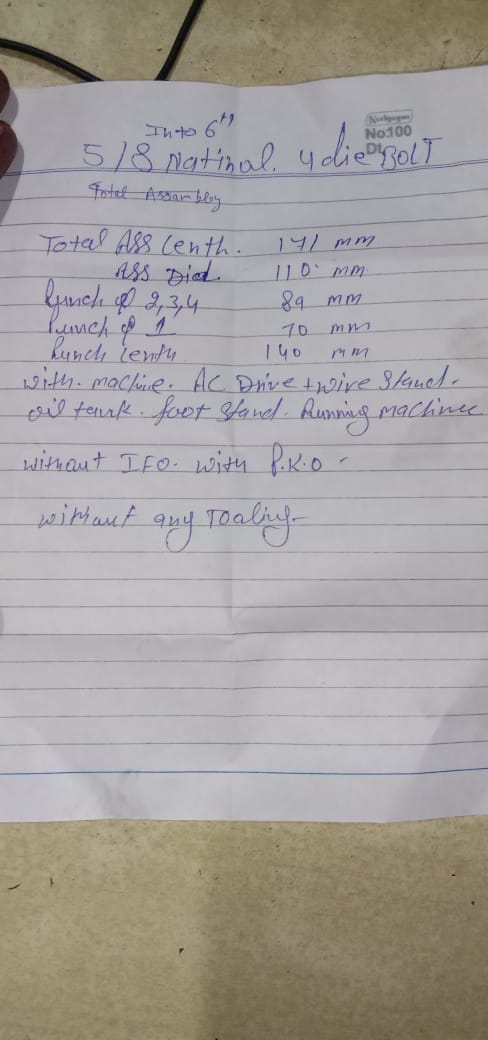 Into 6th
Navyugan
No100
Dt.
5/8 Natinal. 4 die BOLT
Total Assambley
Total Ass Lenth. 171 mm
Ass Dia. 110. mm
Punch φ 2,3,4 89 mm
Punch φ 1 70 mm
Punch lenth 140 mm
with. machine. AC Drive + wire Stand.
oil tank. foot Stand. Running machine
without IFO. with P.K.O -
without any Tooling-